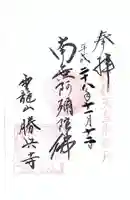 奉拝
平成二十八年十一月十二日
南無阿彌陀佛
雲龍山 勝興寺